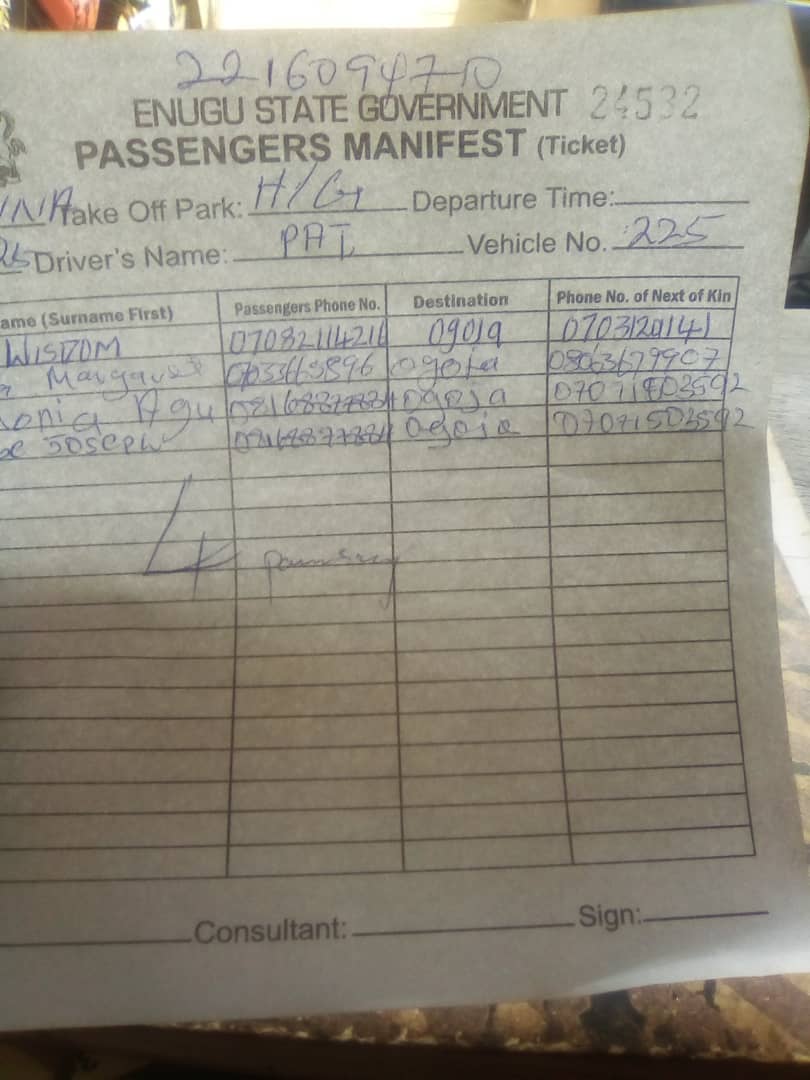 2216094710
ENUGU STATE GOVERNMENT 24532
PASSENGERS MANIFEST (Ticket)
Take Off Park: H/G Departure Time:
Driver's Name: PAT Vehicle No. 225
ame (Surname First) Passengers Phone No. Destination Phone No. of Next of Kin
WISDOM 07082114216 ogoja 0703120141
Margaret ogoja 08063679907
onia Agu ogoja
Joseph ogoja 07071503592
4
Consultant: Sign: